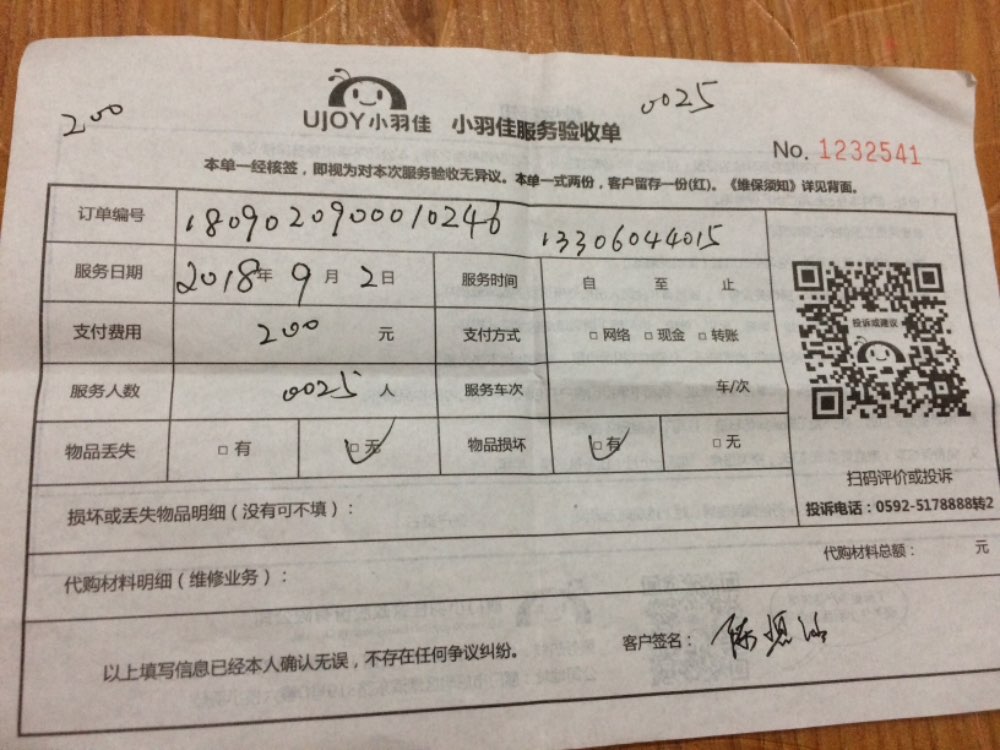 200
0025
UJOY小羽佳 小羽佳服务验收单
No. 1232541
本单一经核签，即视为对本次服务验收无异议。本单一式两份，客户留存一份(红)。《维保须知》详见背面。
订单编号 1809020900010246 13306044015
服务日期 2018年 9月 2日 服务时间 自 至 止
支付费用 200 元 支付方式 □网络 □现金 □转账
服务人数 0025 人 服务车次 车/次
物品丢失 □有 □无 物品损坏 □有 □无
投诉或建议
扫码评价或投诉
投诉电话：0592-5178888转2
损坏或丢失物品明细（没有可不填）：
代购材料明细（维修业务）：
代购材料总额： 元
以上填写信息已经本人确认无误，不存在任何争议纠纷。
客户签名：